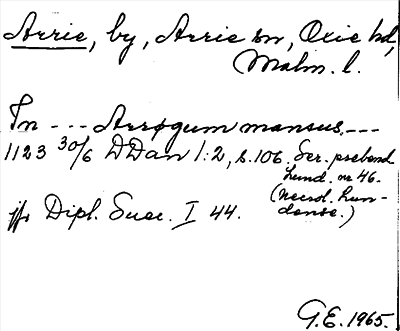 Arrie, by, Arrie sn, Oxie hd,
Malm. l.
In --- Arrøgum mansus ---
1123 30/6 DDan 1:2, s. 106. Ser. prebend
Lund. nr 46.
(Necrol. Lun-
dense.)
jfr Dipl. Suec. I 44.
G.E. 1965.